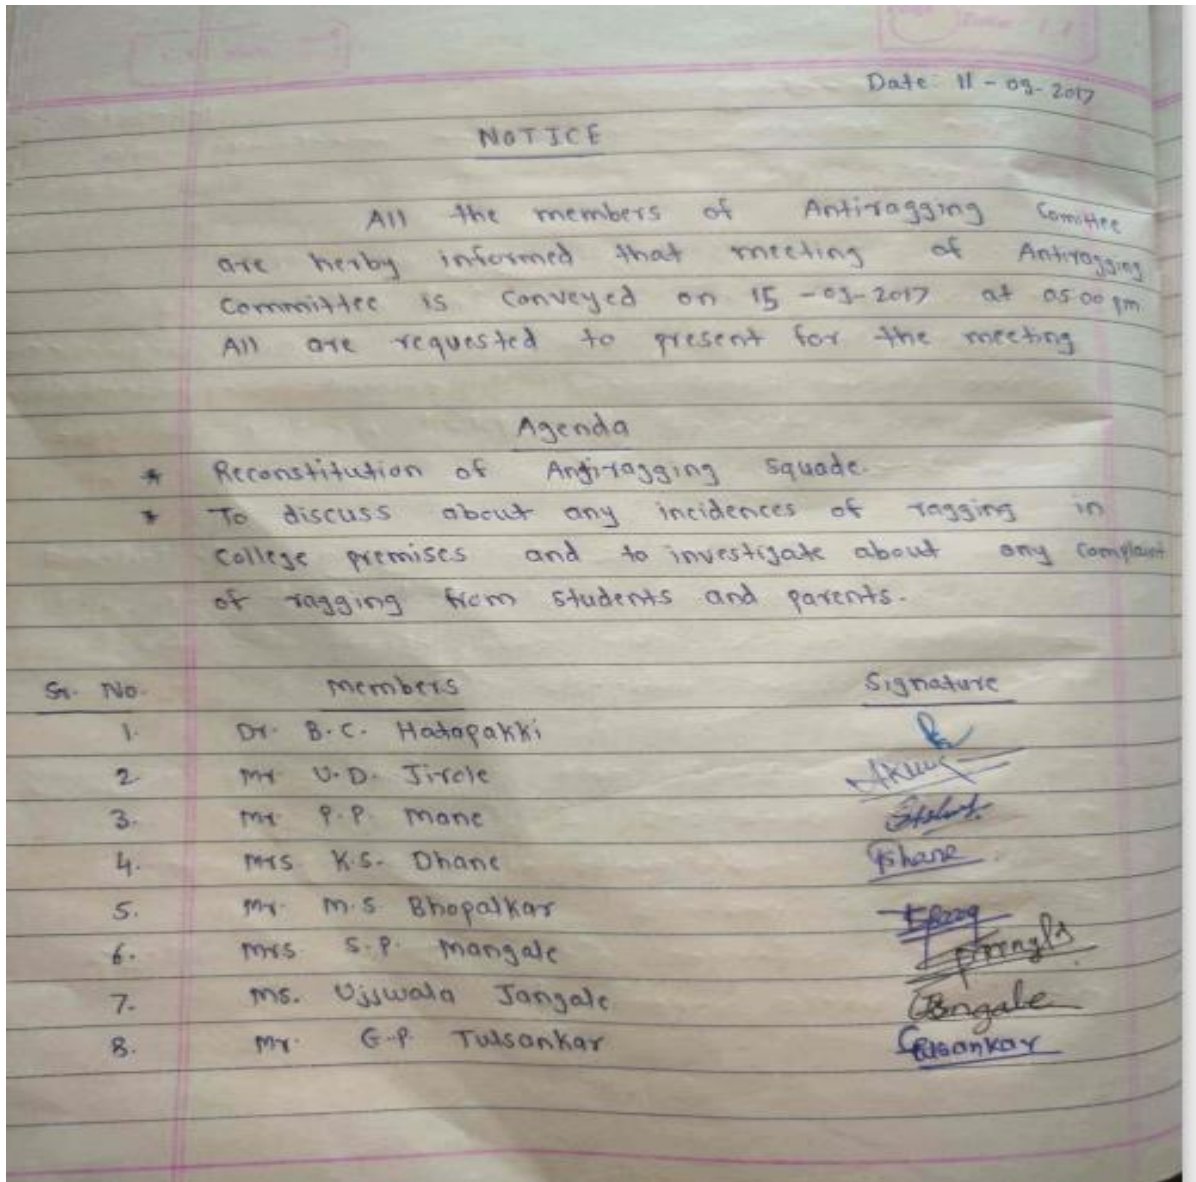 Date: 11-09-2017
NOTICE
All the members of Antiragging Comittee
are herby informed that meeting of Antiragging
Committee is Conveyed on 15-09-2017 at 05.00 pm
All are requested to present for the meeting
Agenda
* Reconstitution of Antiragging squade.
* To discuss about any incidences of ragging in
College premises and to investigate about any Complaint
of ragging from students and parents.
Sr. No. Members Signature
1. Dr. B.C. Hatapakki
2. Mr U.D. Jirole
3. Mr P.P. Mane
4. Mrs K.S. Dhane Dhane
5. Mr. M.S Bhopalkar
6. Mrs. S.P. Mangale
7. Ms. Ujjwala Jangale Jangale
8. Mr. G.P. Tulsankar Tulsankar